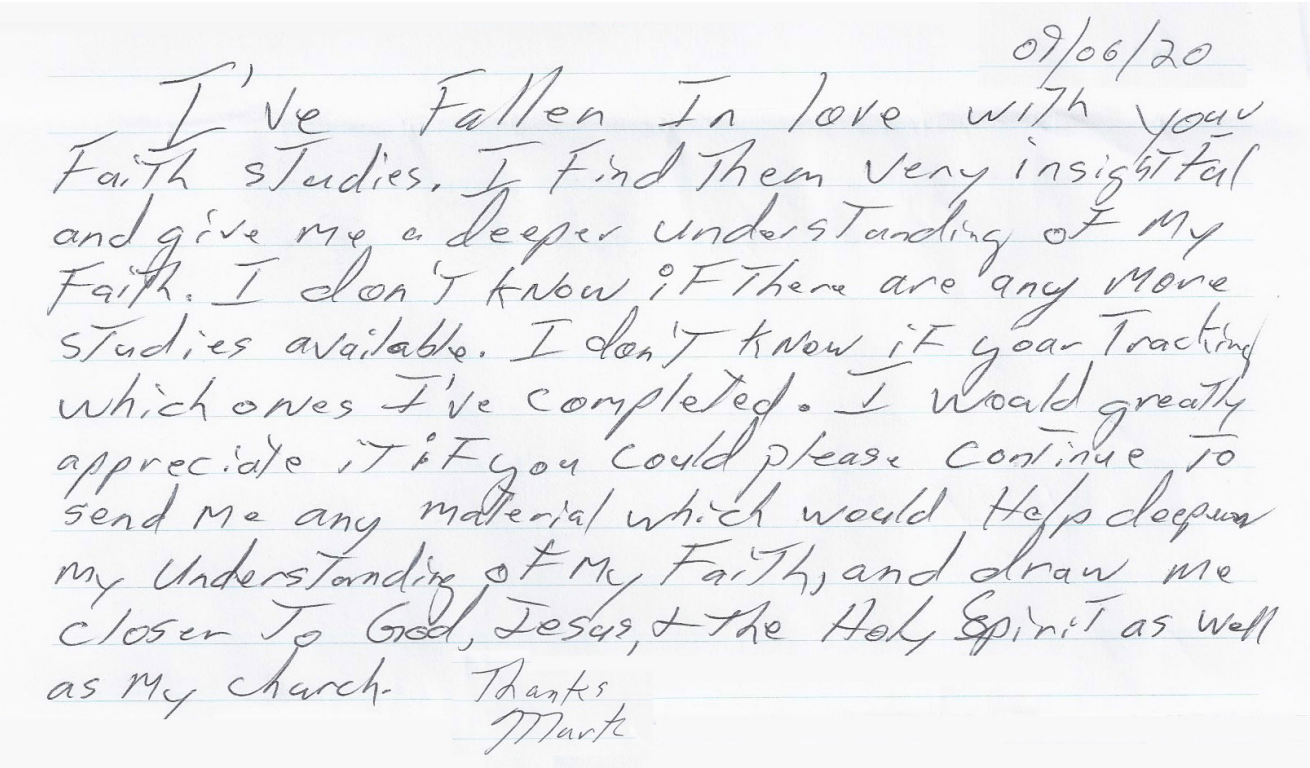 09/06/20
I've Fallen In love with your
Faith studies. I Find Them very insightful
and give me a deeper understanding of My
Faith. I don't know if There are any More
studies available. I don't know if your Tracking
which ones I've completed. I would greatly
appreciate it if you could please continue To
send Me any material which would Help deepen
my Understanding of My Faith, and draw me
closer To God, Jesus, & the Holy Spirit as well
as My church. Thanks
Mark